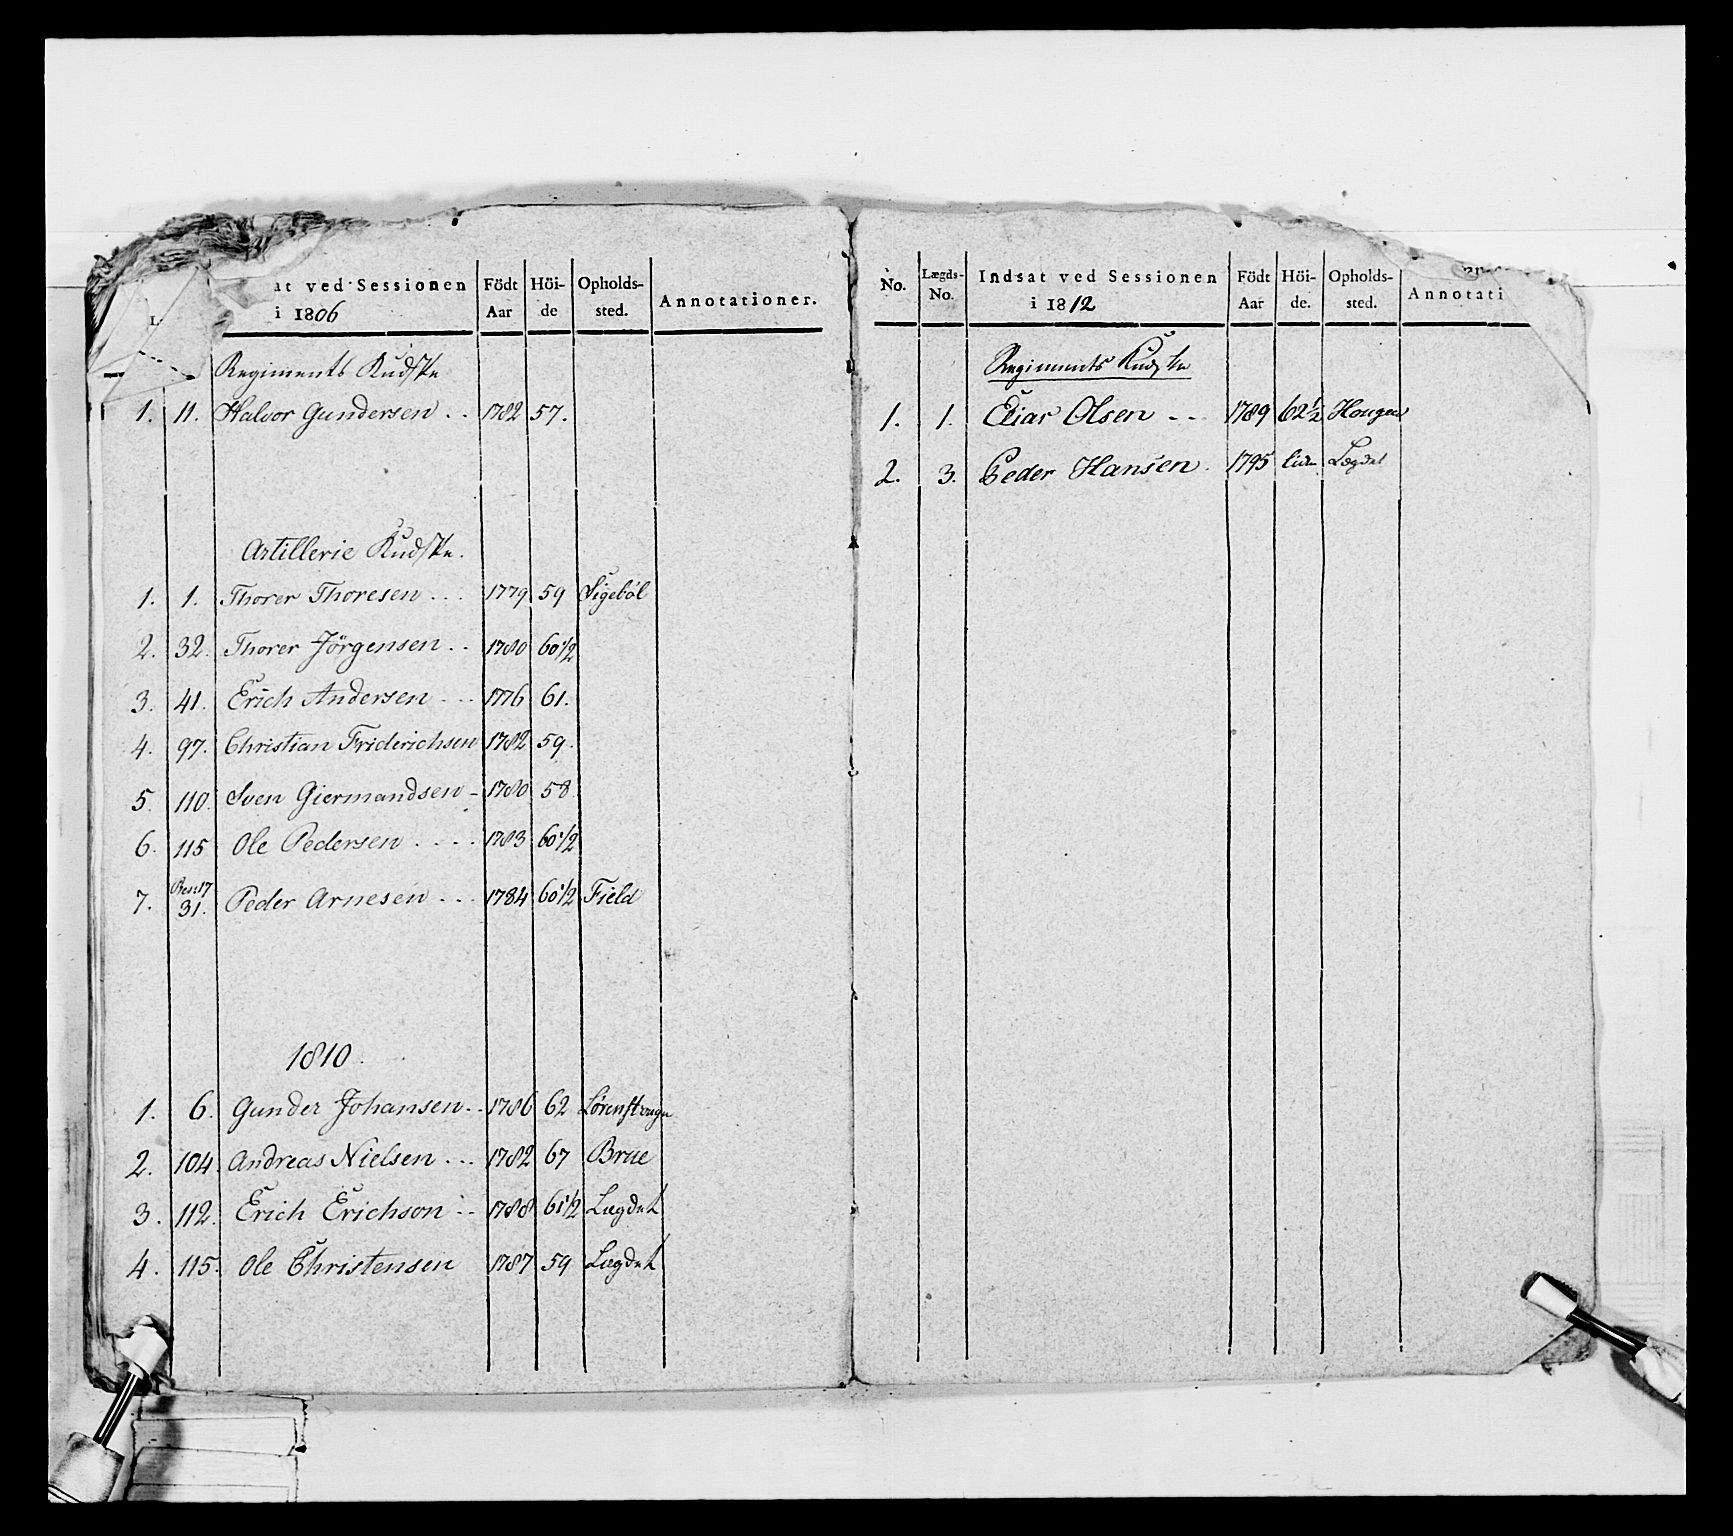 at ved Sessionen Födt Höi- Opholds-
i 1806 Aar de sted. Annotationer.
Regiments Kudske
1. 11. Halvor Gundersen . . 1782 57.
Artillerie Kudske.
1. 1. Thorer Thoresen . . . 1779 59 Sigeböl
2. 32. Thorer Jörgensen . . 1780 60 1/2
3. 41. Erich Andersen . . . 1776 61.
4. 97. Christian Friderichsen 1782 59.
5. 110. Sven Giermandsen - 1780 58
6. 115 Ole Pedersen . . . . 1783 60 1/2
7. 31. Peder Arnesen . . . 1784 60 1/2 Field
1810.
1. 6. Gunder Johansen . . 1786 62
2. 104 Andreas Nielsen . . . 1782 67 Brue
3. 112. Erich Erichson . . 1788 61 1/2 Lægdet
4. 115. Ole Christensen 1787 59 Lægdet
No. Lægds- Indsat ved Sessionen Födt Höi- Opholds-
No. i 1812 Aar de. sted. Annotati
Regiments Kudske
1. 1. Eliar Olsen - - 1789 62 1/2 Hougen
2. 3. Peder Hansen . 1795 Lægdet